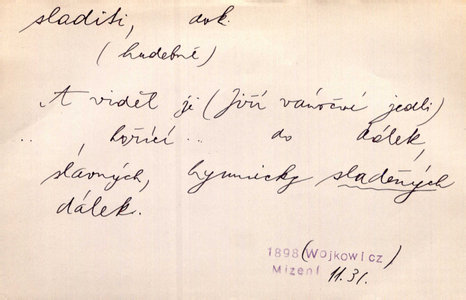 sladiti, dok.
(hudebně)
A viděl je (Jiří vánoční jedli)
.. hořící... do dálek,
slavných, hymnicky sladěných
dálek.
1898 (Wojkowicz)
Mizení 11.31.